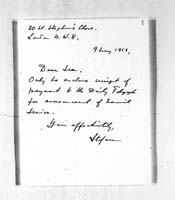 20 St. Stephen's Close.
London N.W.8.
9 May 1956.
Dear Lea.
Only to enclose receipt of
payment to the Daily Telegraph
for announcement of
Service
Yours affectionately,